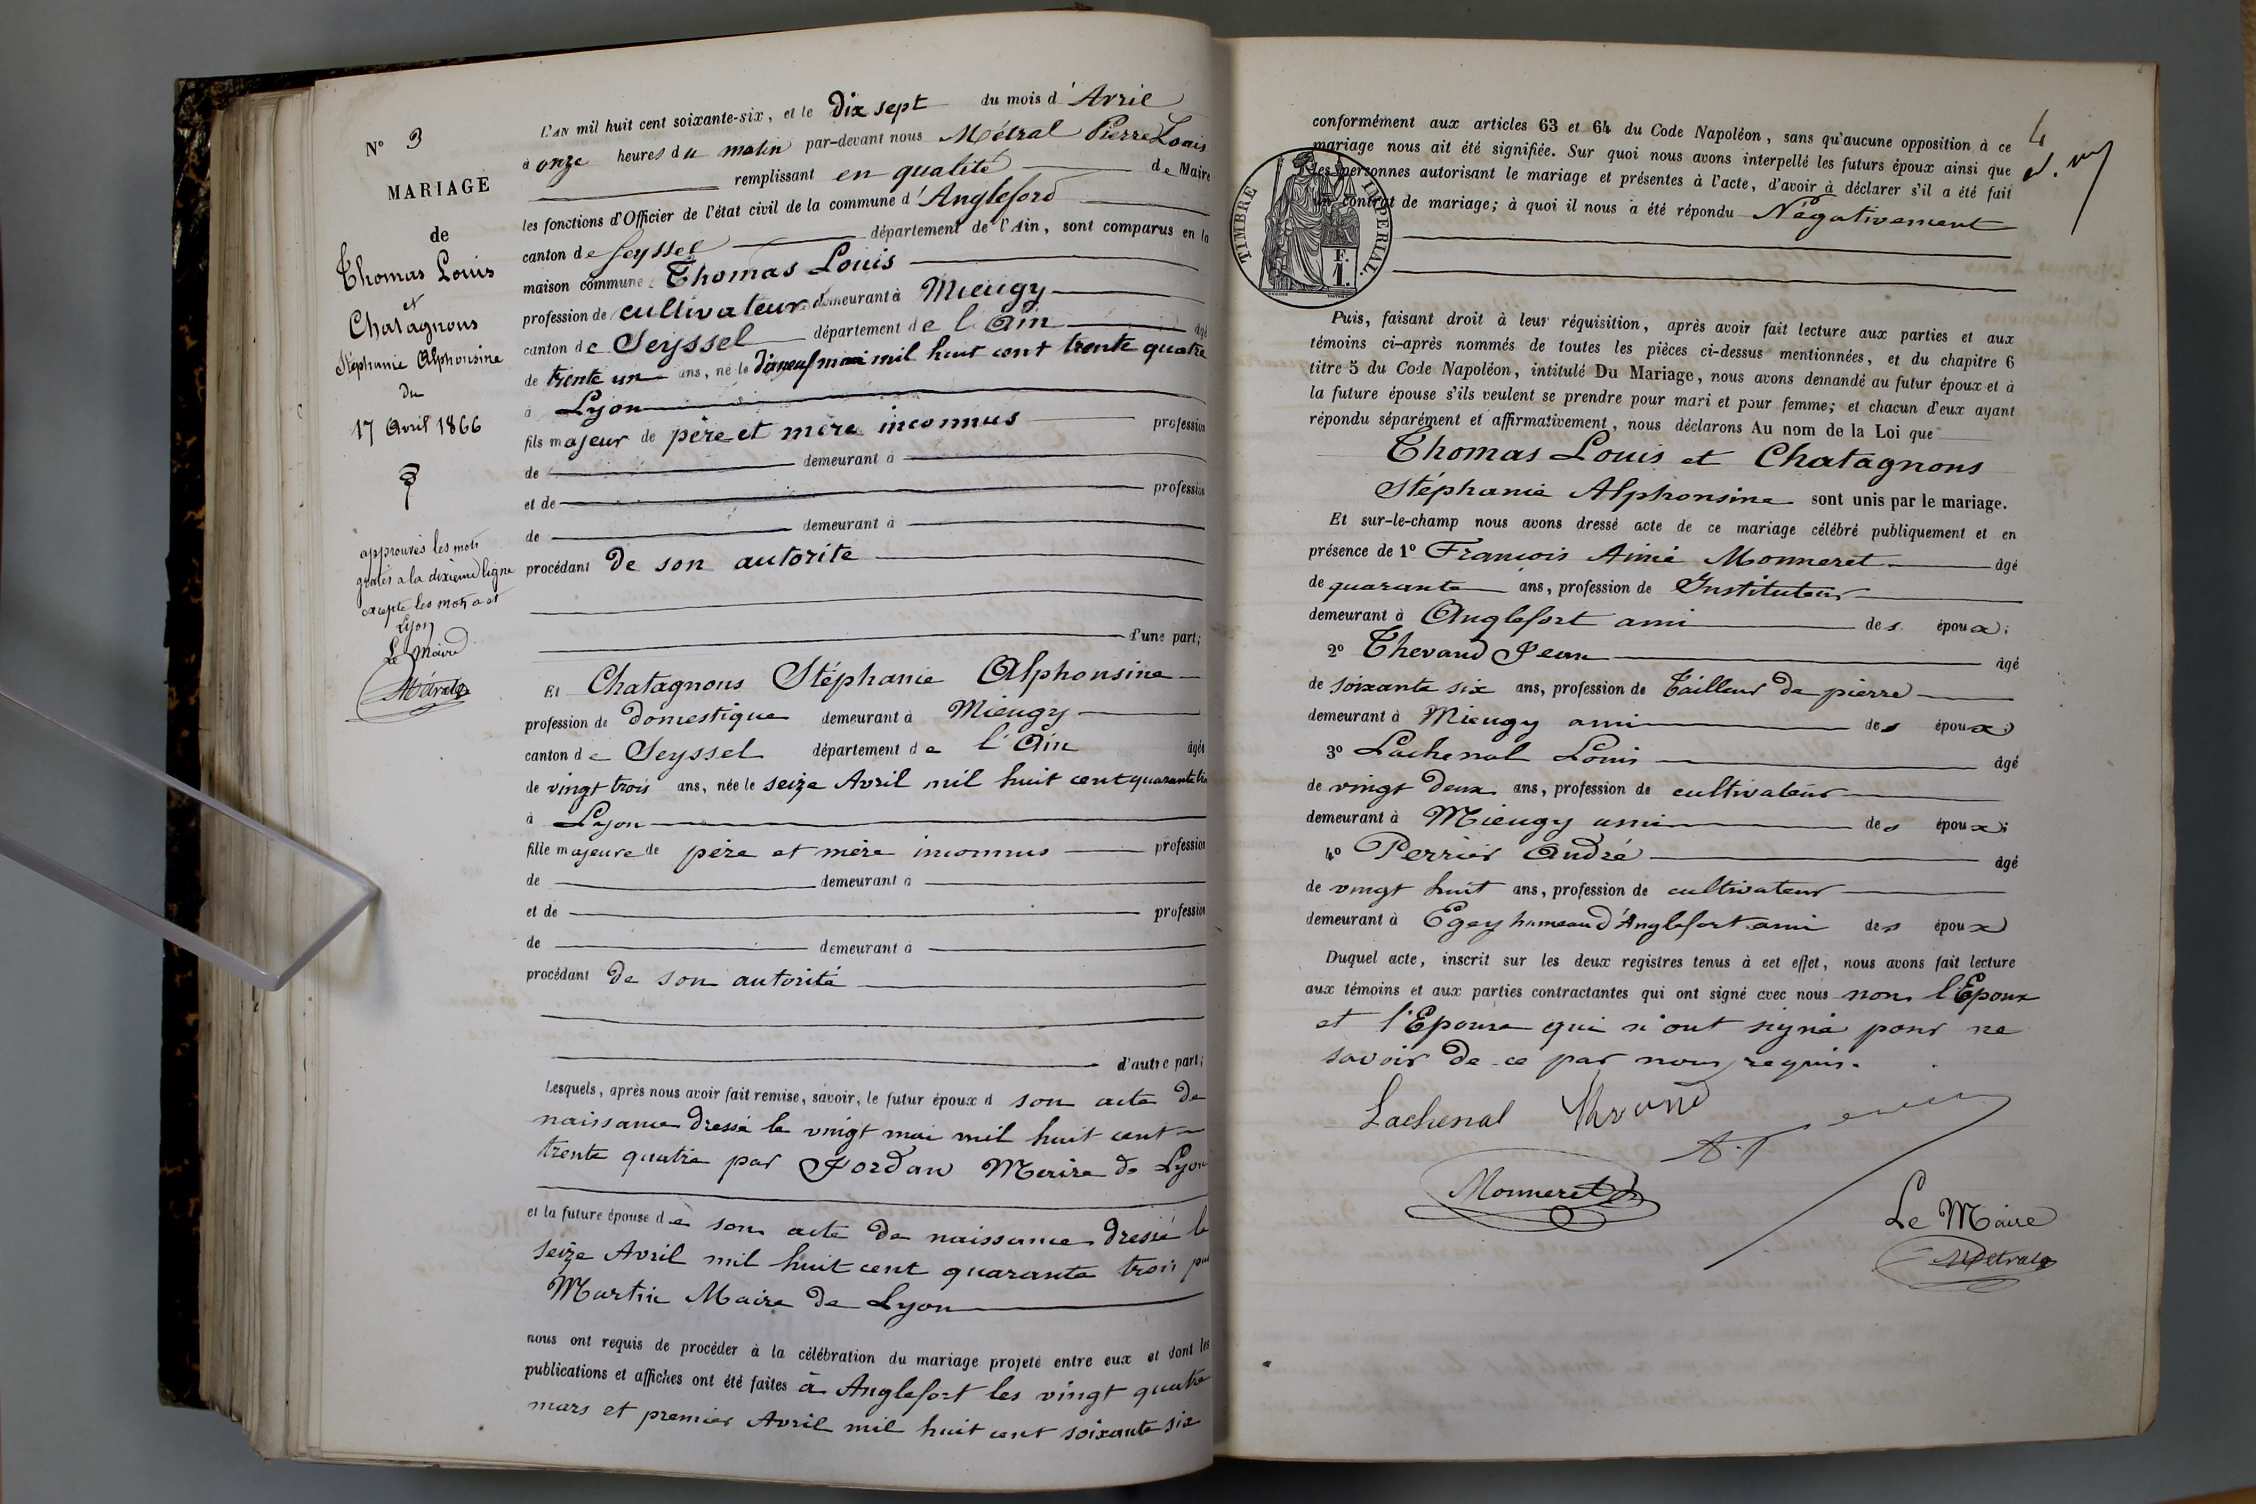 N° 3
MARIAGE
de
Thomas Louis
et
Chatagnons
Stéphanie Alphonsine
du
17 Avril 1866
approuvés les mots
à la dixième ligne
excepté les mots a et
Lyon
Le Maire
Métral
L'AN mil huit cent soixante-six, et le Dix sept du mois d'Avril
à onze heures du matin par-devant nous Métral Pierre Louis
remplissant en qualité de Maire
les fonctions d'Officier de l'état civil de la commune d'Angleford
canton de Seyssel département de l'Ain, sont comparus en la
maison commune : Thomas Louis
profession de cultivateur demeurant à Mieugy
canton de Seyssel département de l'Ain âgé
de trente un ans, né le dixneuf mai mil huit cent trente quatre
à Lyon
fils majeur de père et mère inconnus profession
de demeurant à
et de profession
de demeurant à
procédant de son autorité
d'une part;
Et Chatagnons Stéphanie Alphonsine
profession de domestique demeurant à Mieugy
canton de Seyssel département de l'Ain âgée
de vingt trois ans, née le seize Avril mil huit cent quarante trois
à Lyon
fille majeure de père et mère inconnus profession
de demeurant à
et de profession
de demeurant à
procédant de son autorité
d'autre part;
Lesquels, après nous avoir fait remise, savoir, le futur époux d son acte de
naissance dressé le vingt mai mil huit cent
trente quatre par Jordan Merire de Lyon
et la future épouse de son acte de naissance dressé le
seize Avril mil huit cent quarante trois par
Martin Maire de Lyon
nous ont requis de procéder à la célébration du mariage projeté entre eux et dont les
publications et affiches ont été faites à Anglefort les vingt quatre
mars et premier Avril mil huit cent soixante six
4
conformément aux articles 63 et 64 du Code Napoléon, sans qu'aucune opposition à ce
mariage nous ait été signifiée. Sur quoi nous avons interpellé les futurs époux ainsi que
les personnes autorisant le mariage et présentes à l'acte, d'avoir à déclarer s'il a été fait
un contrat de mariage; à quoi il nous a été répondu Négativement
TIMBRE IMPÉRIAL.
F.
1.
Puis, faisant droit à leur réquisition, après avoir fait lecture aux parties et aux
témoins ci-après nommés de toutes les pièces ci-dessus mentionnées, et du chapitre 6
titre 5 du Code Napoléon, intitulé Du Mariage, nous avons demandé au futur époux et à
la future épouse s'ils veulent se prendre pour mari et pour femme; et chacun d'eux ayant
répondu séparément et affirmativement, nous déclarons Au nom de la Loi que
Thomas Louis et Chatagnons
Stéphanie Alphonsine sont unis par le mariage.
Et sur-le-champ nous avons dressé acte de ce mariage célébré publiquement et en
présence de 1° François Aimé Monneret âgé
de quarante ans, profession de Instituteur
demeurant à Anglefort ami des époux;
2° Thevand Jean âgé
de soixante six ans, profession de tailleur de pierre
demeurant à Mieugy ami des époux;
3° Lachenal Louis âgé
de vingt deux ans, profession de cultivateur
demeurant à Mieugy ami des époux;
4° Perrier André âgé
de vingt huit ans, profession de cultivateur
demeurant à Egey hameau d'Anglefort ami des époux
Duquel acte, inscrit sur les deux registres tenus à cet effet, nous avons fait lecture
aux témoins et aux parties contractantes qui ont signé avec nous non l'Epoux
et l'Epouse qui n'ont signé pour ne
savoir de ce par nous requis.
Lachenal
Monneret
Le Maire
Métral